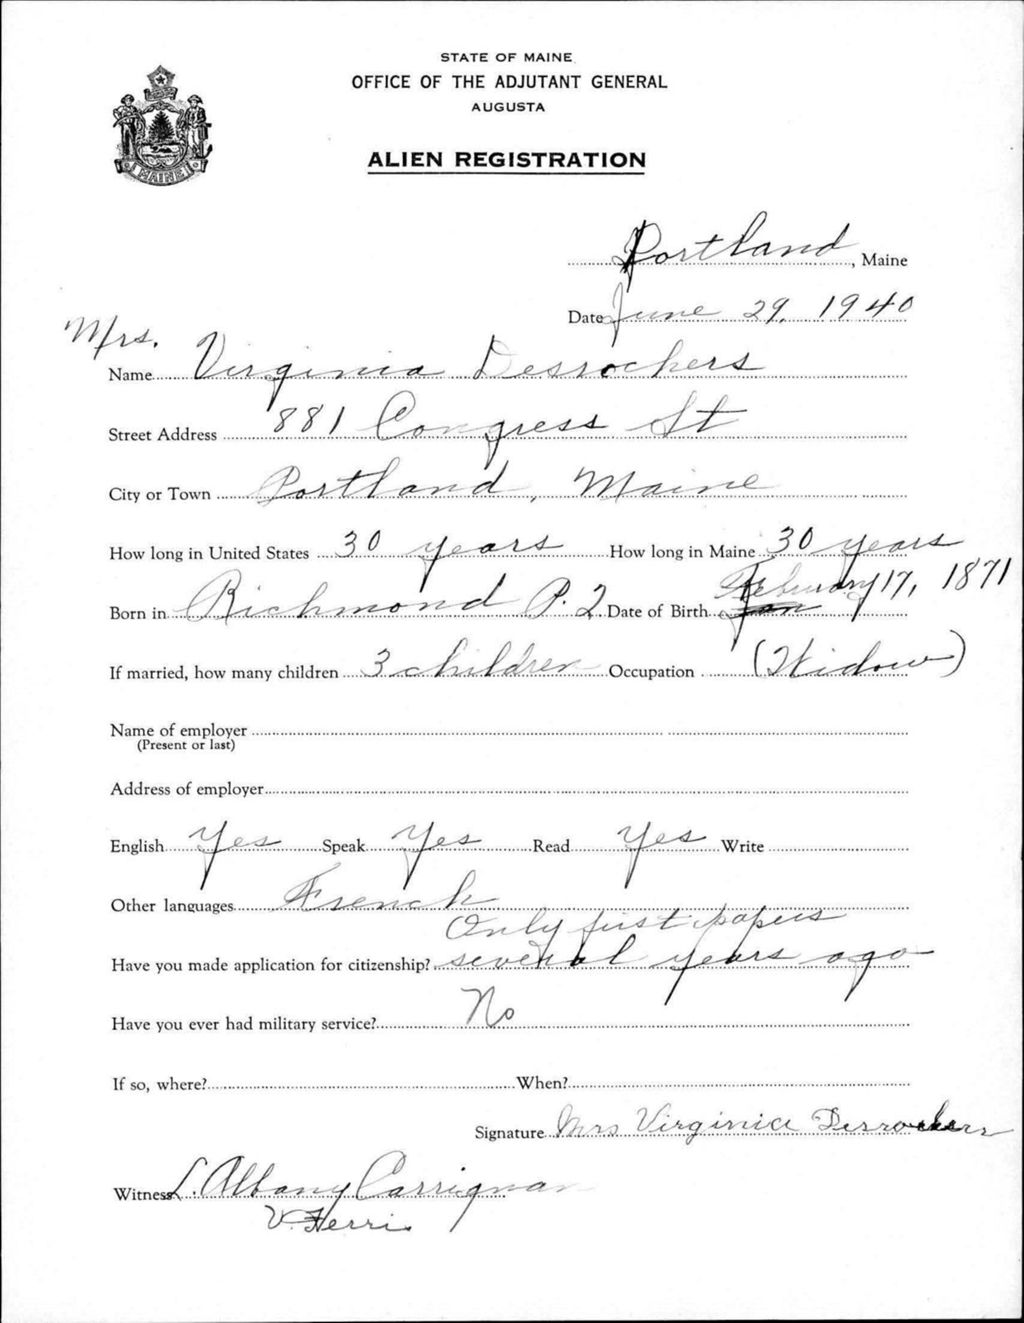 STATE OF MAINE
OFFICE OF THE ADJUTANT GENERAL
AUGUSTA
ALIEN REGISTRATION
MAINE
Portland, Maine
Date June 29, 1940
Mrs.
Name Virginia Desrochers
Street Address 881 Congress St
City or Town Portland, Maine
How long in United States 30 years How long in Maine 30 years
Born in Richmond P.2 Date of Birth Jan February 17, 1871
If married, how many children 3 children Occupation (Widow)
Name of employer
(Present or last)
Address of employer
English Yes Speak Yes Read Yes Write
Other languages French
Only first papers
Have you made application for citizenship? several years ago
Have you ever had military service? No
If so, where? When?
Signature Mrs Virginia Desrochers
Witness L. Albany Carrignan
V. Ferris